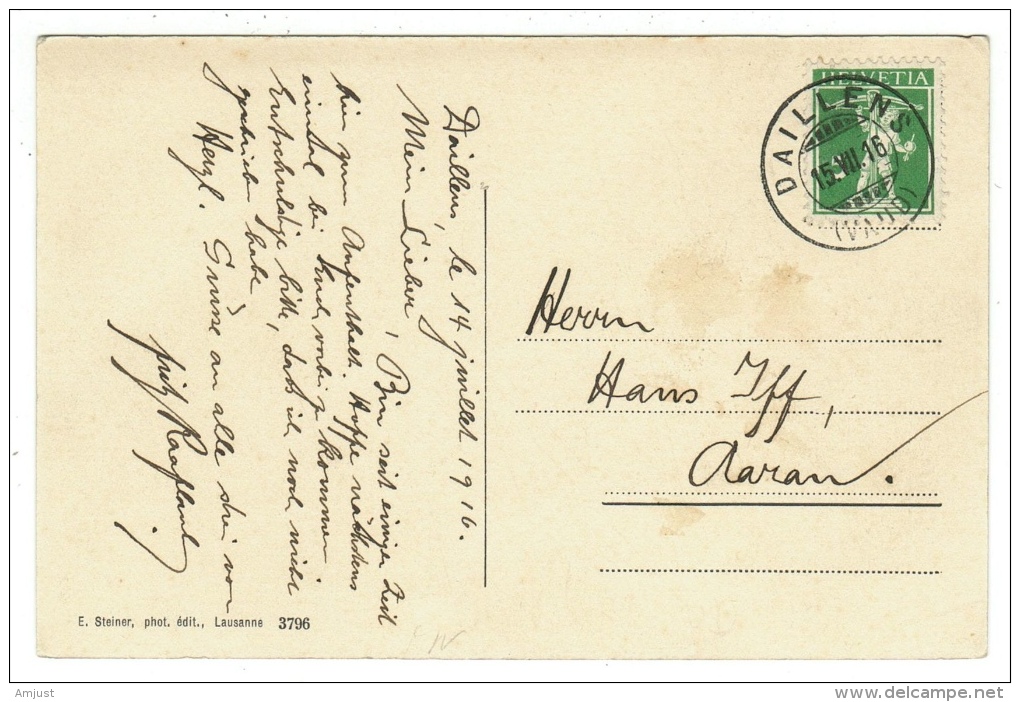 Daillens, le 14 juillet 1916.
Mein Lieber, Bin seit einiger Zeit
hier zum Aufenthalt. Hoffe nächstens
einmal bei Euch vorbei zu kommen.
Entschuldige bitte, dass ich noch nicht
geschrieben habe.
Herzl. Grüsse an alle von
Fritz
E. Steiner, phot. édit., Lausanne 3796
HELVETIA
DAILLENS
15.VII.16
(VAUD)
Herrn
Hans Iff,
Aarau.
Amjust
www.delcampe.net